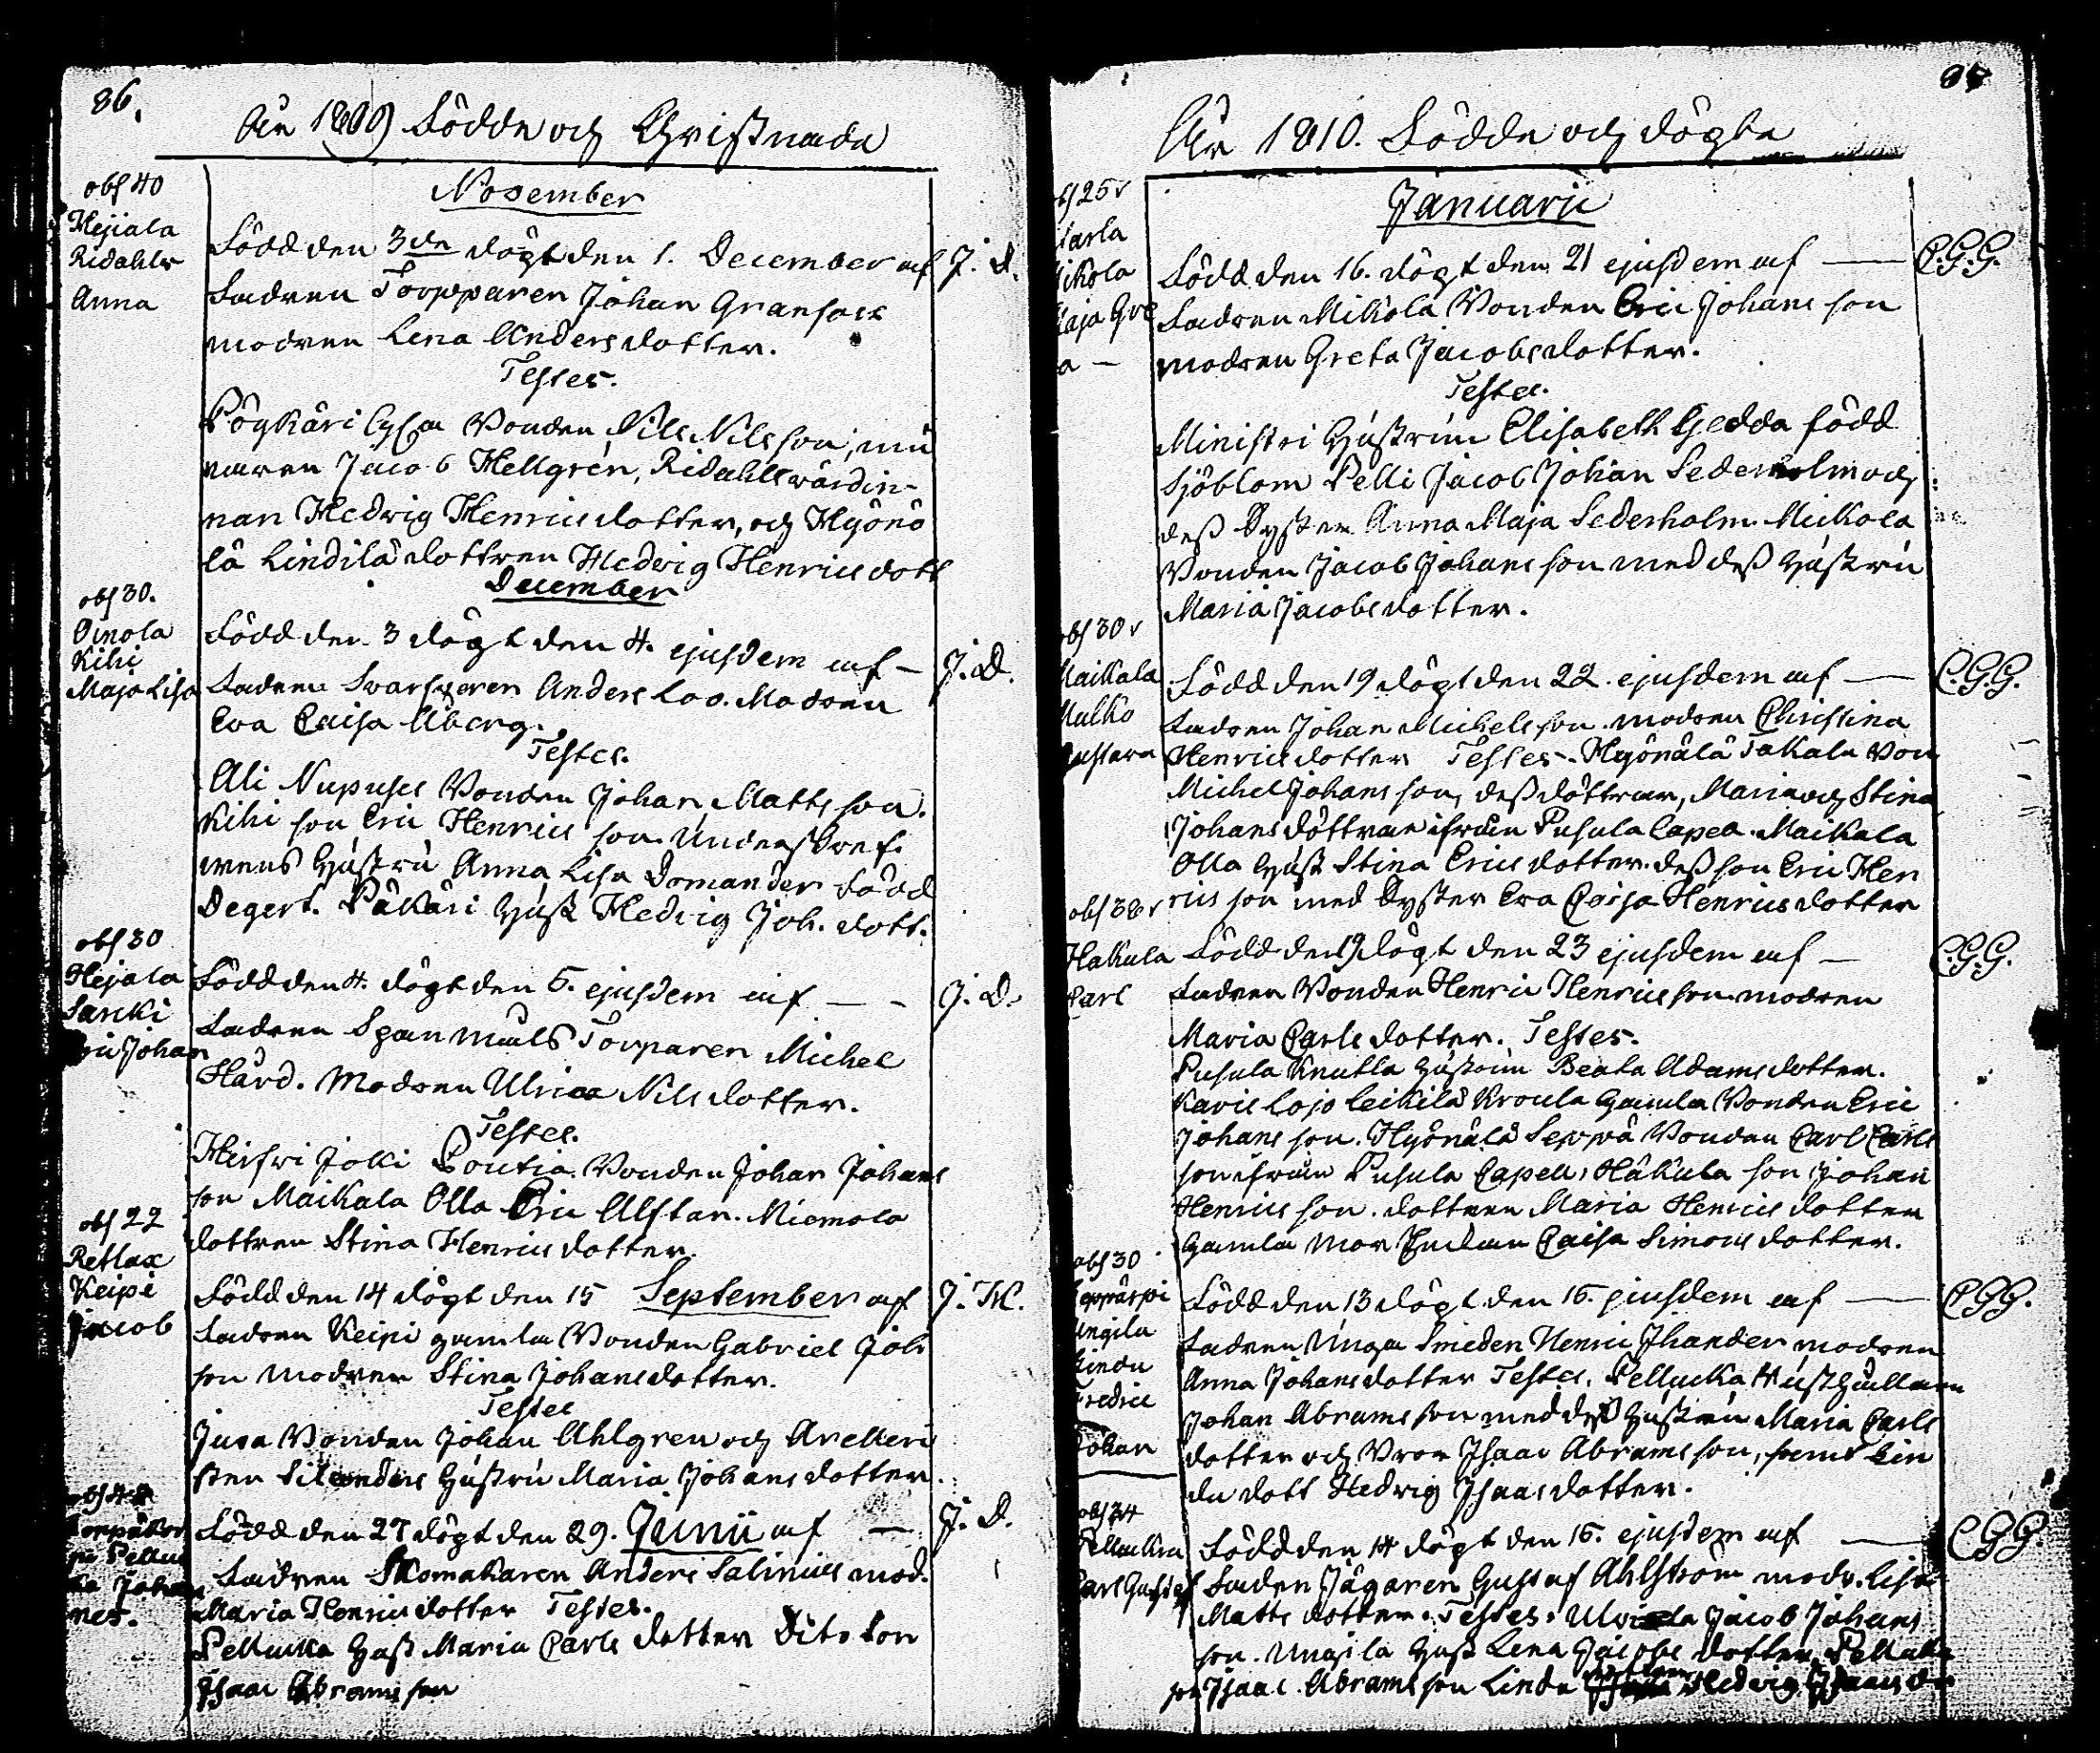 86.
År 1809 Födde och Christnade
November
obs 40
Hejiala
Ridahls
Anna
Född den 3de döpt den 1. December af J. D.
Fadren Torpparen Johan Granfors
modren Lena Andersdotter.
Testes.
Bonden Nils Nilsson, mu
raren Jacob Hellgrén, Ridahls värdin-
nan Hedvig Henricsdotter, och Hyönö
lä Lindilä dottren Hedvig Henricsdott
December
obs 30.
Oinola
Kihi
Maja Lisa
Född den 3 döpt den 4. ejusdem af — J. D.
Fadren Svarfvaren Anders Loo. Modren
Eva Caisa Åberg.
Testes.
Ali Nupuses Bonden Johan Mattsson.
Kihi son Eric Henricsson. Underskref-
vens Hustru Anna Lisa Domander född
Degert. Päkäri Hust Hedvig Joh. dott.
obs 30
Hejala
Johan
Född den 4. döpt den 5. ejusdem af — - J. D.
Fadren Spanmåls Torparen Michel
Hård. Modren Ulrica Nilsdotter.
Testes.
Hirfvi Joki Bonden Johan Johans
son Maikala Olla Eric Alftan. Niemola
dottren Stina Henricsdotter.
obs 22
Retlax
Keipi
Jacob
Född den 14 döpt den 15 September af J. K.
Fadren Keipi gamla Bonden Gabriel Joh
son Modren Stina Johansdotter.
Testes
Jusa Bonden Johan Ahlgren och Arelleri
sten Hustru Maria Johansdotter.
Johan
nes.
Född den 27 döpt den 29. Junii af — J. D.
Fadren Skomakaren Anders Salinius mod.
Maria Henricsdotter Testes.
Pellucka Hust Maria Carls dotter Dito Son
Isaac Abramsson
87
År 1810. Födde och döpte
Januarii
obs 25
Född den 16. döpt den 21 ejusdem af — C.G.G.
Fadren Mikola Bonden Eric Johans son
modren Greta Jacobsdotter.
Testes.
Ministri Hustrun Elisabeth Gedda född
Sjöblom Pelli Jacob Johan Sederholm och
dess Syster Anna Maja Sederholm. Mickola
Bonden Jacob Johansson med dess Hustru
Maria Jacobsdotter.
obs 30
Maikala
Mulko
Gustava
Född den 19 döpt den 22 ejusdem af — C.G.G.
Fadren Johan Michelsson. modren Christina
Henricsdotter Testes. Hyönälä Takala Bon
Michel Johansson, dess döttrar, Maria och Stina
Johansdöttrar ifrån Pusula Capell. Maikala
Olla Hust Stina Ericsdotter. dess son Eric Hen
rics son med Syster Eva Caisa Henricsdotter
Hakula
Carl
Född den 19 döpt den 23 ejusdem af — C.G.G.
Fadren Bonden Henric Henricsson. modren
Maria Carlsdotter. Testes.
Pusula Knutla Hustrun Beata Adamsdotter.
Karis Lojo Leikilä Kroula gamla Bonden Eric
Johans son. Hyönälä Seppä Bonden Carl Carls
son ifrån Pusula Capell, Hakula son Johan
Henricsson. dottren Maria Henricsdotter
gamla Mor Caisa Simonsdotter.
obs 30
Ungila
Lindu
Fredric
Johan
Född den 13 döpt den 15. ejusdem af — CGG.
Fadren Unga Smeden Henric Ihander modren
Anna Johansdotter Testes. Pellucka Husthållaren
Johan Abramsson med dess Hustru Maria Carls
dotter och Bror Isaac Abramsson, samt Lin
du dott Hedvig Isaacsdotter.
obs 24
Pellucka
Carl Gustaf
Född den 14 döpt den 15. ejusdem af — CGG.
Fadren Jägaren Gustaf Ahlström modr. Lisa
Matts dotter. Testes. Jacob Johans
son. Ungila Hust Lena Jacobs dotter, Pellucka
son Isaac Abramsson Linda Hedvig Isaacs d